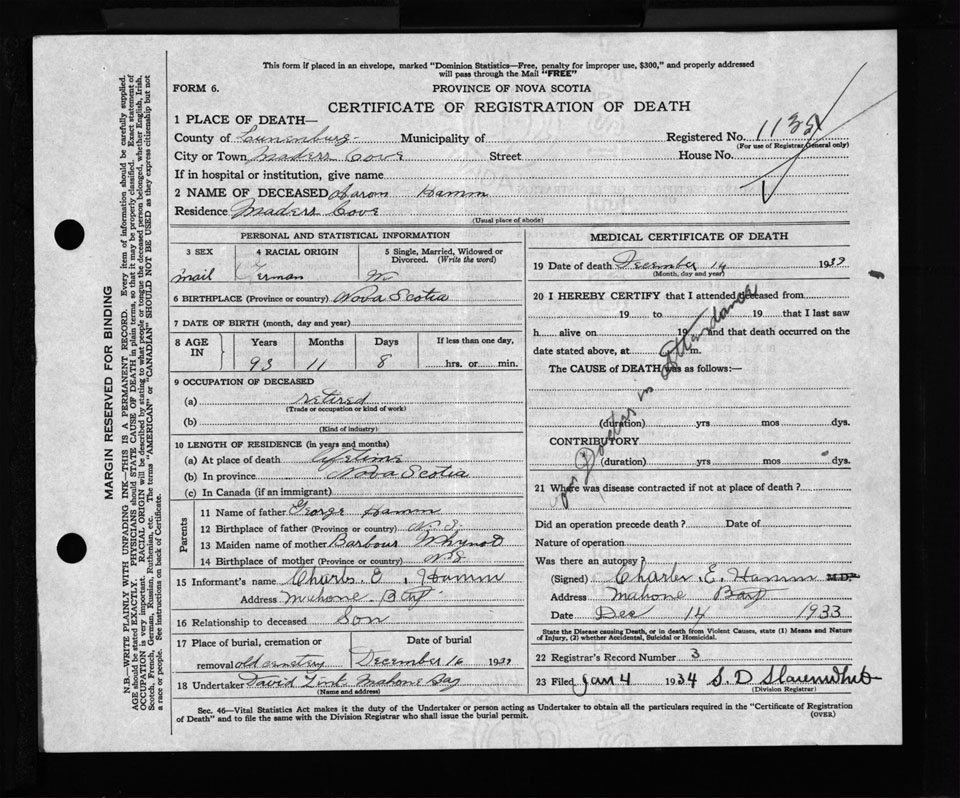 This form if placed in an envelope, marked "Dominion Statistics—Free, penalty for improper use, $300," and properly addressed
will pass through the Mail "FREE"
FORM 6.
PROVINCE OF NOVA SCOTIA
CERTIFICATE OF REGISTRATION OF DEATH
1 PLACE OF DEATH—
County of Lunenburg Municipality of Registered No.
(For use of Registrar General only)
City or Town Maders Cove Street House No.
If in hospital or institution, give name
2 NAME OF DECEASED Aaron Hamm
Residence Maders Cove
(Usual place of abode)
PERSONAL AND STATISTICAL INFORMATION
3 SEX 4 RACIAL ORIGIN 5 Single, Married, Widowed or Divorced. (Write the word)
Mail German W
6 BIRTHPLACE (Province or country) Nova Scotia
7 DATE OF BIRTH (month, day and year)
8 AGE IN Years Months Days If less than one day,
93 11 8 hrs. or min.
9 OCCUPATION OF DECEASED
(a) retired
(Trade or occupation or kind of work)
(b)
(Kind of industry)
10 LENGTH OF RESIDENCE (in years and months)
(a) At place of death lifetime
(b) In province Nova Scotia
(c) In Canada (if an immigrant)
Parents
11 Name of father George Hamm
12 Birthplace of father (Province or country) N.S.
13 Maiden name of mother Barbour Whynot
14 Birthplace of mother (Province or country) NS
15 Informant's name Charls E, Hamm
Address Mahone Bay
16 Relationship to deceased Son
17 Place of burial, cremation or Date of burial
removal old cemetry December 16 1933
18 Undertaker David Mahone Bay
(Name and address)
MEDICAL CERTIFICATE OF DEATH
19 Date of death December 14 1933
(Month, day and year)
20 I HEREBY CERTIFY that I attended deceased from
19 to 19 that I last saw
h alive on 19 and that death occurred on the
date stated above, at m.
The CAUSE of DEATH was as follows:—
(duration) yrs mos dys.
CONTRIBUTORY
(duration) yrs mos dys.
Doctor in Attendance
21 Where was disease contracted if not at place of death?
Did an operation precede death? Date of
Nature of operation
Was there an autopsy?
(Signed) Charles E. Hamm M.D.
Address Mahone Bay
Date Dec 14 1933
State the Disease causing Death, or in death from Violent Causes, state (1) Means and Nature
of Injury, (2) whether Accidental, Suicidal or Homicidal.
22 Registrar's Record Number 3
23 Filed Jan 4 1934 S. D
(Division Registrar)
Sec. 46—Vital Statistics Act makes it the duty of the Undertaker or person acting as Undertaker to obtain all the particulars required in the "Certificate of Registration
of Death" and to file the same with the Division Registrar who shall issue the burial permit.
(OVER)
MARGIN RESERVED FOR BINDING
N.B.—WRITE PLAINLY WITH UNFADING INK—THIS IS A PERMANENT RECORD. Every item of information should be carefully supplied.
AGE should be stated EXACTLY. PHYSICIANS should STATE CAUSE OF DEATH in plain terms, so that it may be properly classified. Exact statement of
OCCUPATION is very important. RACIAL ORIGIN will be described by stating to what people or tongue the deceased person belonged, whether English, Irish,
Scotch, French, German, Russian, Ruthenian, etc. The terms "AMERICAN" or "CANADIAN" SHOULD NOT BE USED as they express citizenship but not
a race or people. See instructions on back of Certificate.